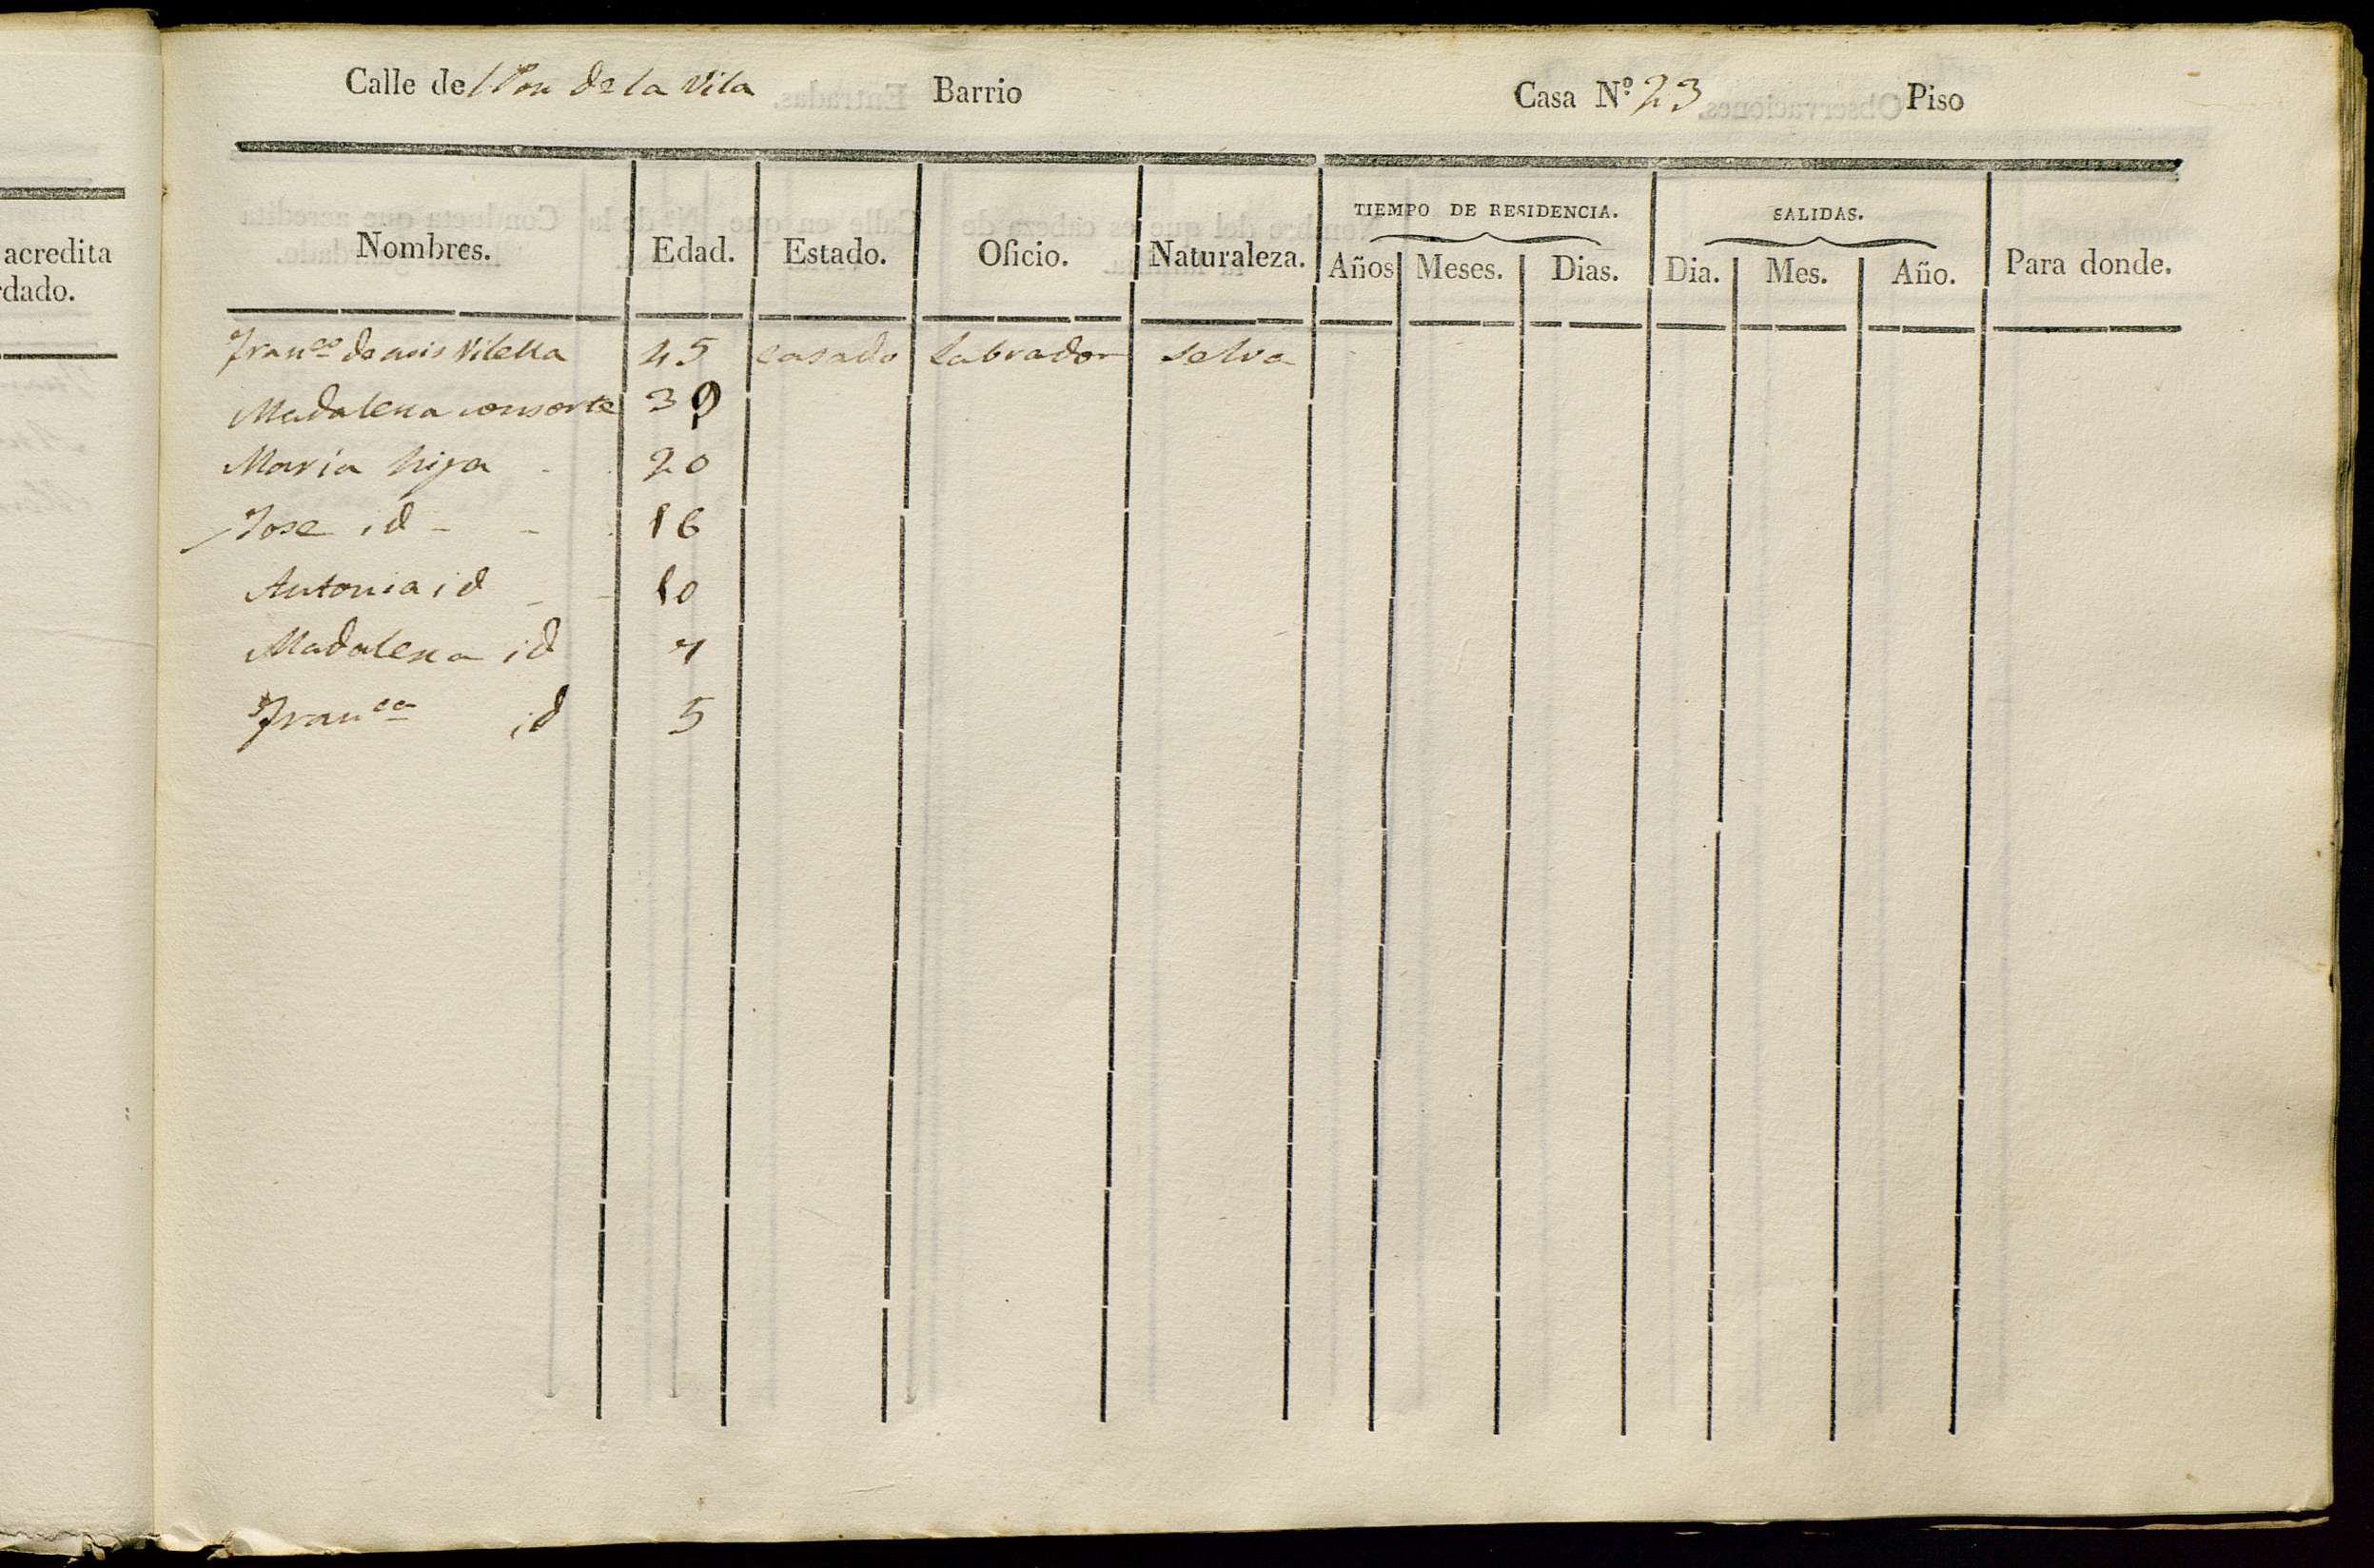 acredita
rdado.
Calle del Pou de la Vila Barrio Casa Nº 23 Piso
Nombres. Edad. Estado. Oficio. Naturaleza. TIEMPO DE RESIDENCIA. SALIDAS. Para donde.
Años Meses. Dias. Dia. Mes. Año.
Franco de asis Vilella 45 casado Labrador Selva
Madalena consorte 39
Maria hija - 20
Jose id - - 16
Antonia id - - 10
Madalena id 7
Franca id 5